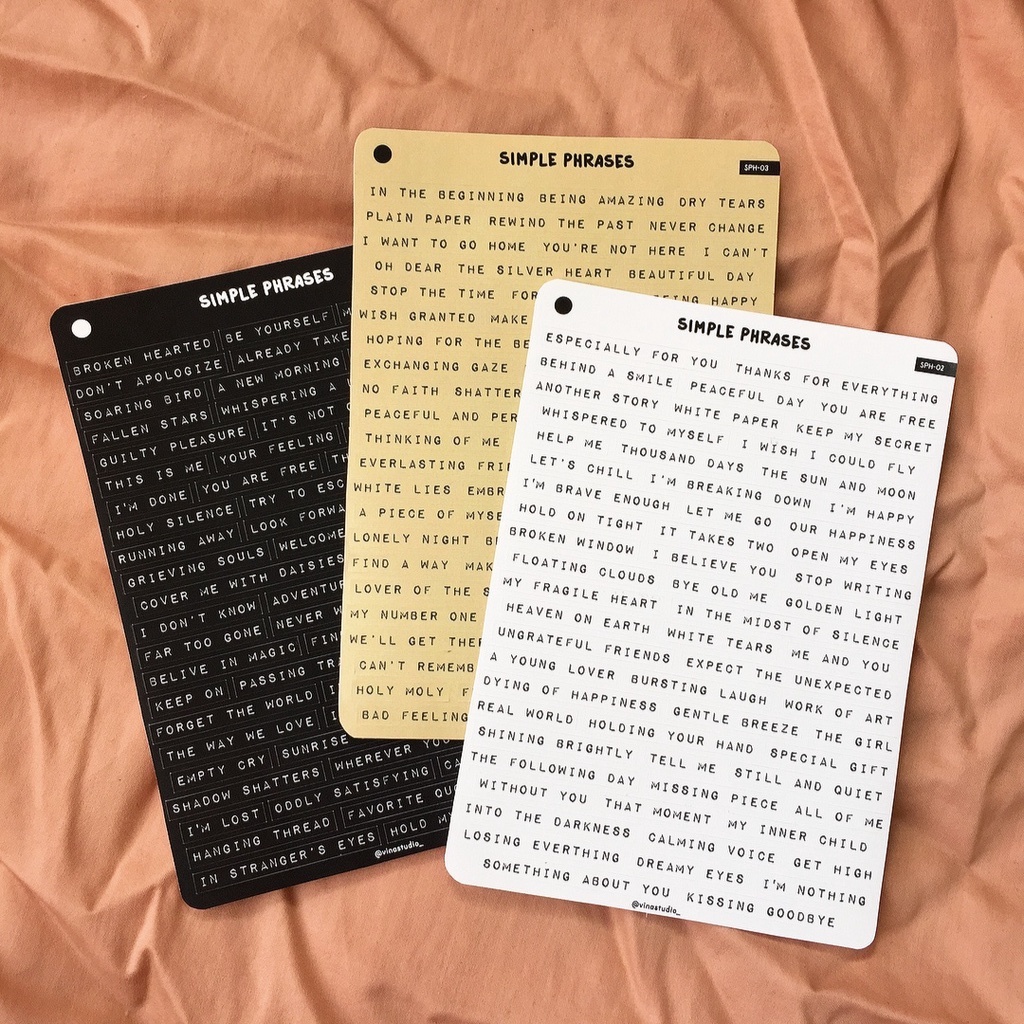 SIMPLE PHRASES
BROKEN HEARTED BE YOURSELF
DON'T APOLOGIZE ALREADY TAKE
SOARING BIRD A NEW MORNING
FALLEN STARS WHISPERING A
GUILTY PLEASURE IT'S NOT
THIS IS ME YOUR FEELING
I'M DONE YOU ARE FREE
HOLY SILENCE TRY TO ESC
RUNNING AWAY LOOK FORWA
GRIEVING SOULS WELCOME
COVER ME WITH DAISIES
I DON'T KNOW ADVENTUR
FAR TOO GONE NEVER W
BELIVE IN MAGIC FIN
KEEP ON PASSING TRA
FORGET THE WORLD
THE WAY WE LOVE
EMPTY CRY SUNRISE
SHADOW SHATTERS WHEREVER YOU
I'M LOST ODDLY SATISFYING CA
HANGING THREAD FAVORITE QUO
IN STRANGER'S EYES HOLD MY
@vinastudio_
SIMPLE PHRASES
SPH-03
IN THE BEGINNING BEING AMAZING DRY TEARS
PLAIN PAPER REWIND THE PAST NEVER CHANGE
I WANT TO GO HOME YOU'RE NOT HERE I CAN'T
OH DEAR THE SILVER HEART BEAUTIFUL DAY
STOP THE TIME FOR BEING HAPPY
WISH GRANTED MAKE
HOPING FOR THE BE
EXCHANGING GAZE
NO FAITH SHATTER
PEACEFUL AND PER
THINKING OF ME
EVERLASTING FRIE
WHITE LIES EMBR
A PIECE OF MYSE
LONELY NIGHT BE
FIND A WAY MAK
LOVER OF THE S
MY NUMBER ONE
WE'LL GET THER
CAN'T REMEMB
HOLY MOLY F
BAD FEELING
SIMPLE PHRASES
SPH-02
ESPECIALLY FOR YOU THANKS FOR EVERYTHING
BEHIND A SMILE PEACEFUL DAY YOU ARE FREE
ANOTHER STORY WHITE PAPER KEEP MY SECRET
WHISPERED TO MYSELF I WISH I COULD FLY
HELP ME THOUSAND DAYS THE SUN AND MOON
LET'S CHILL I'M BREAKING DOWN I'M HAPPY
I'M BRAVE ENOUGH LET ME GO OUR HAPPINESS
HOLD ON TIGHT IT TAKES TWO OPEN MY EYES
BROKEN WINDOW I BELIEVE YOU STOP WRITING
FLOATING CLOUDS BYE OLD ME GOLDEN LIGHT
MY FRAGILE HEART IN THE MIDST OF SILENCE
HEAVEN ON EARTH WHITE TEARS ME AND YOU
UNGRATEFUL FRIENDS EXPECT THE UNEXPECTED
A YOUNG LOVER BURSTING LAUGH WORK OF ART
DYING OF HAPPINESS GENTLE BREEZE THE GIRL
REAL WORLD HOLDING YOUR HAND SPECIAL GIFT
SHINING BRIGHTLY TELL ME STILL AND QUIET
THE FOLLOWING DAY MISSING PIECE ALL OF ME
WITHOUT YOU THAT MOMENT MY INNER CHILD
INTO THE DARKNESS CALMING VOICE GET HIGH
LOSING EVERTHING DREAMY EYES I'M NOTHING
SOMETHING ABOUT YOU KISSING GOODBYE
@vinastudio_